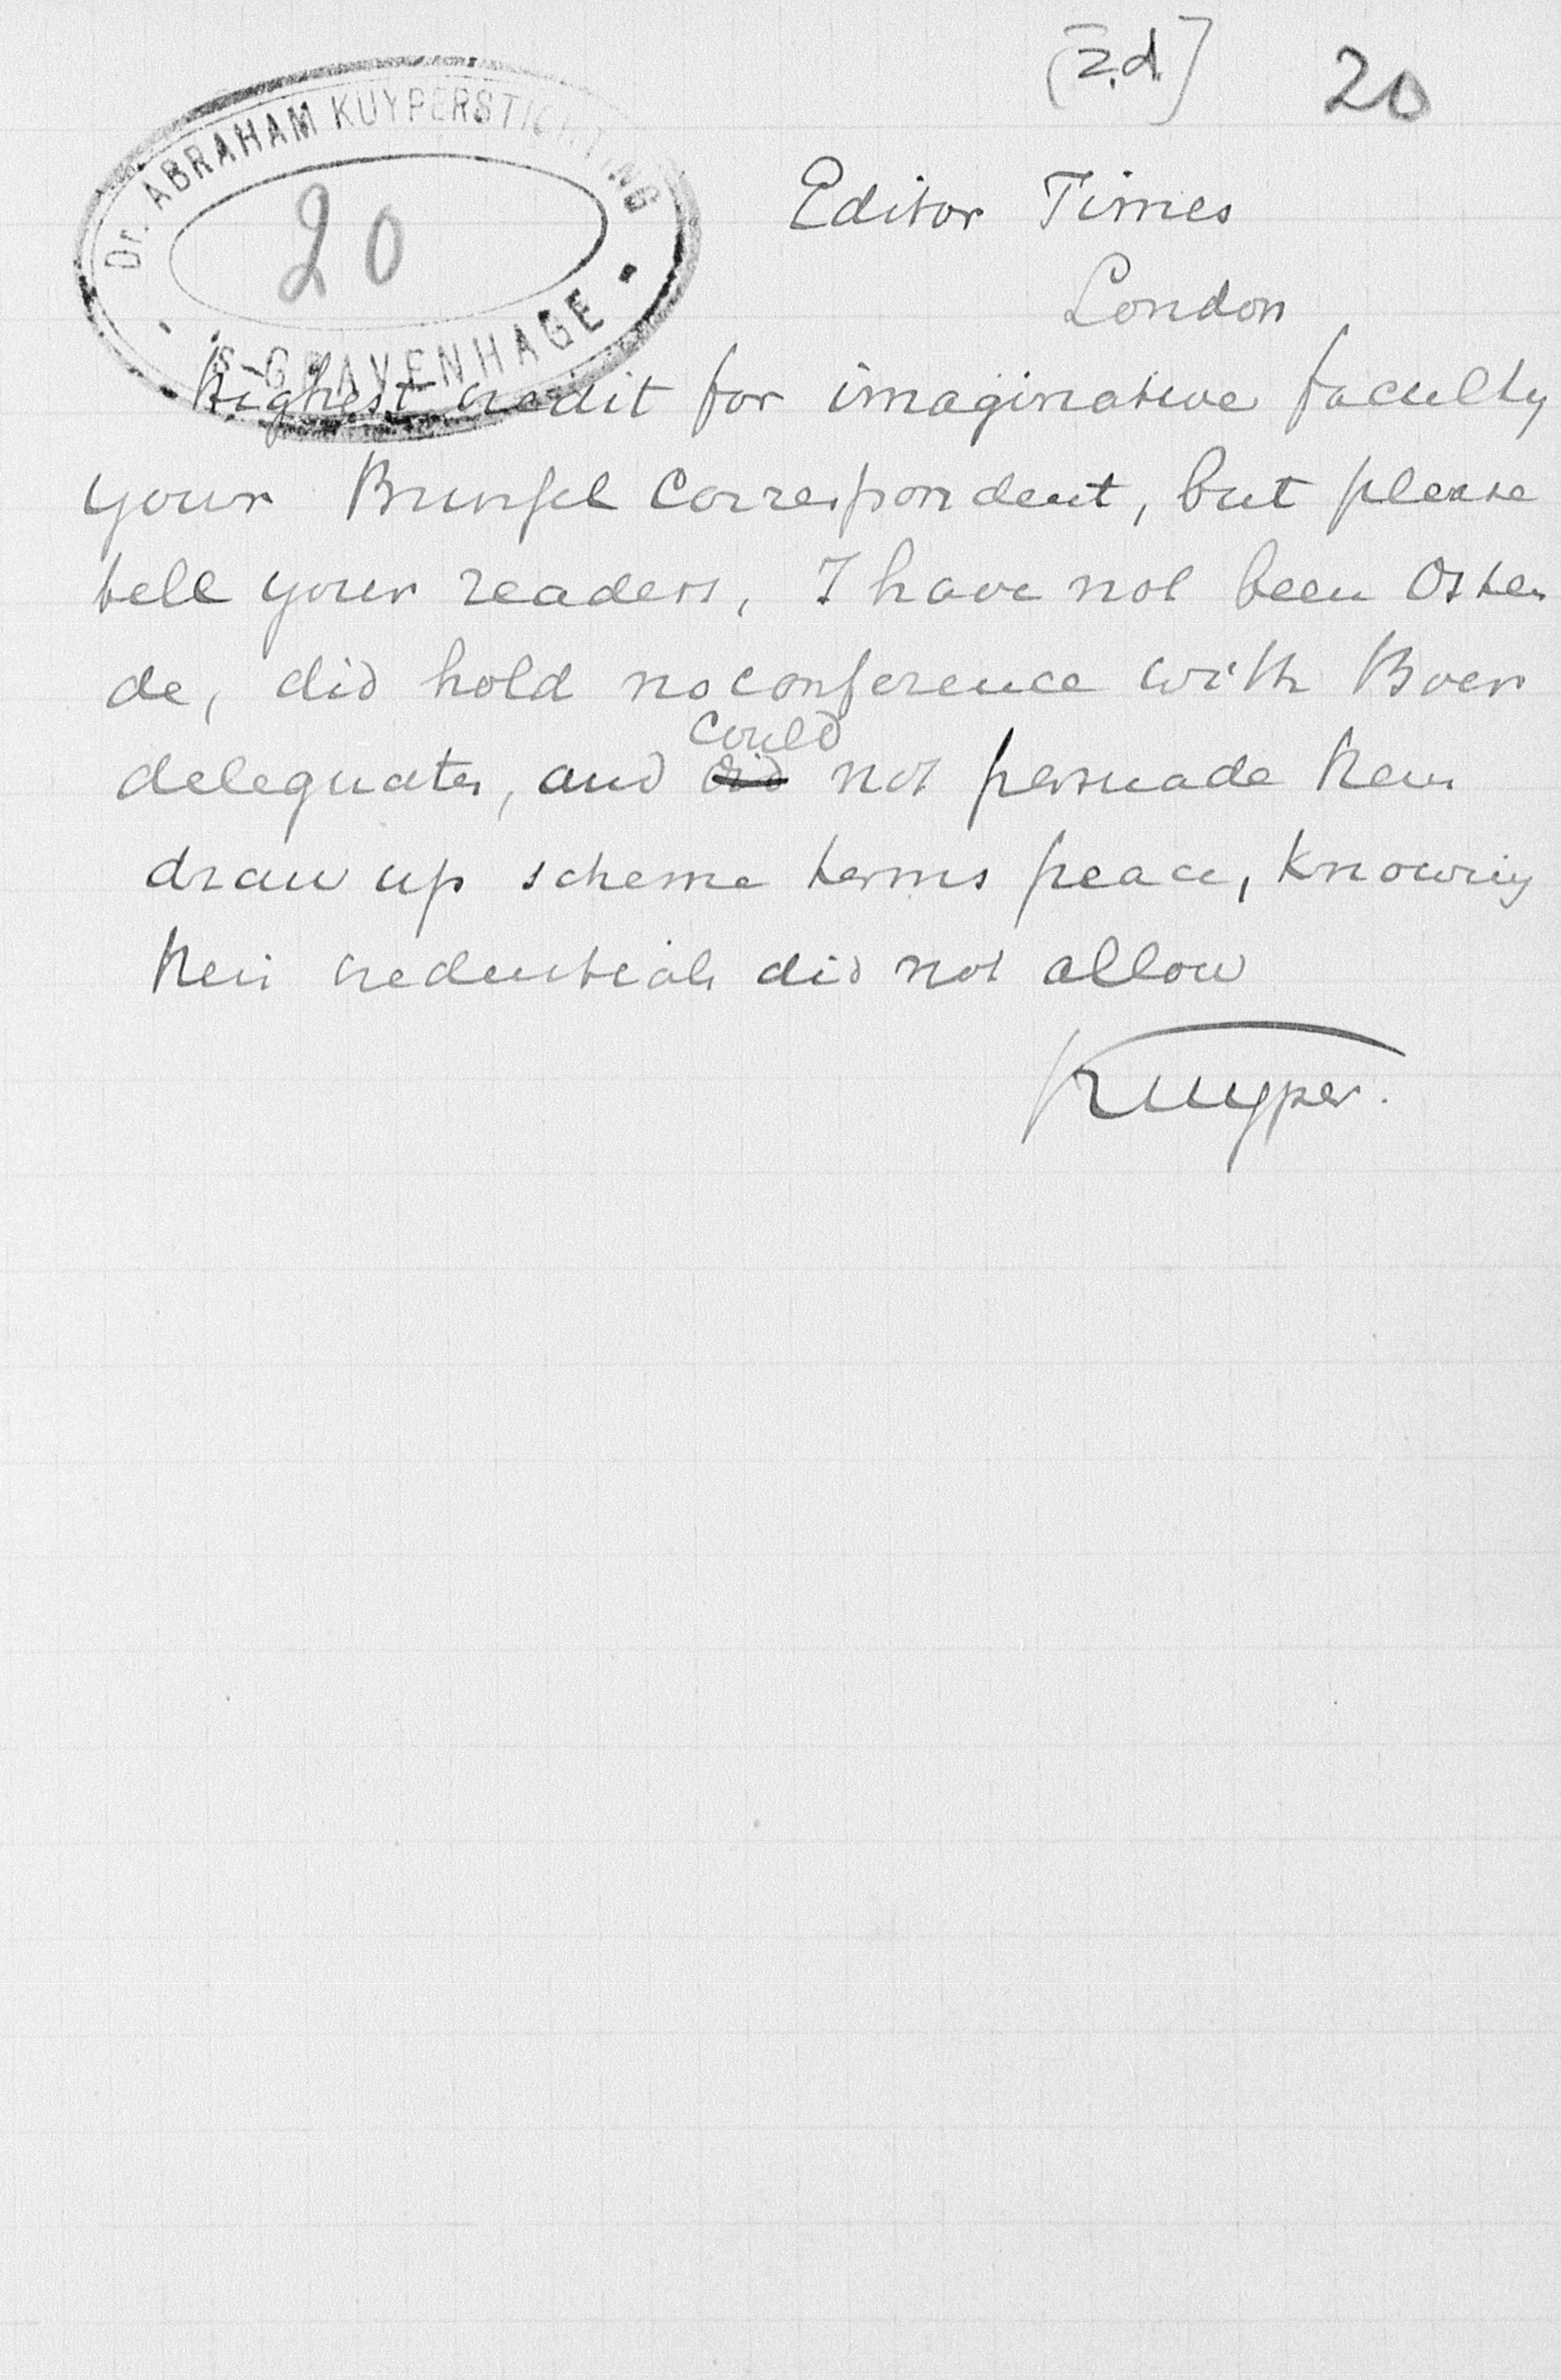 [z.d.] 20
Dr. ABRAHAM KUYPERSTICHTING
20
'S-GRAVENHAGE
Editor Times
London
Highest credit for imaginative faculty
your Brussel correspondent, but please
tell your readers, I have not been Osten
de, did hold no conference with Boer
could
deleguates, and did not persuade them
draw up scheme terms peace, knowing
their credentials did not allow
Kuyper.